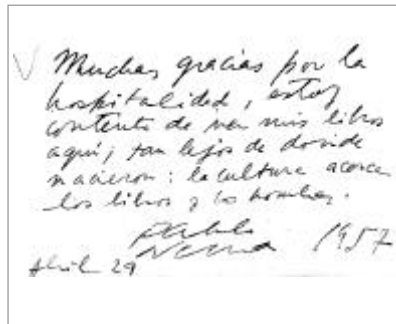 Muchas gracias por la
hospitalidad, estoy
contento de ver mis libros
aquí, tan lejos de donde
nacieron: la cultura acerca
los libros y los hombres.
Pablo
Neruda 1957
Abril 29